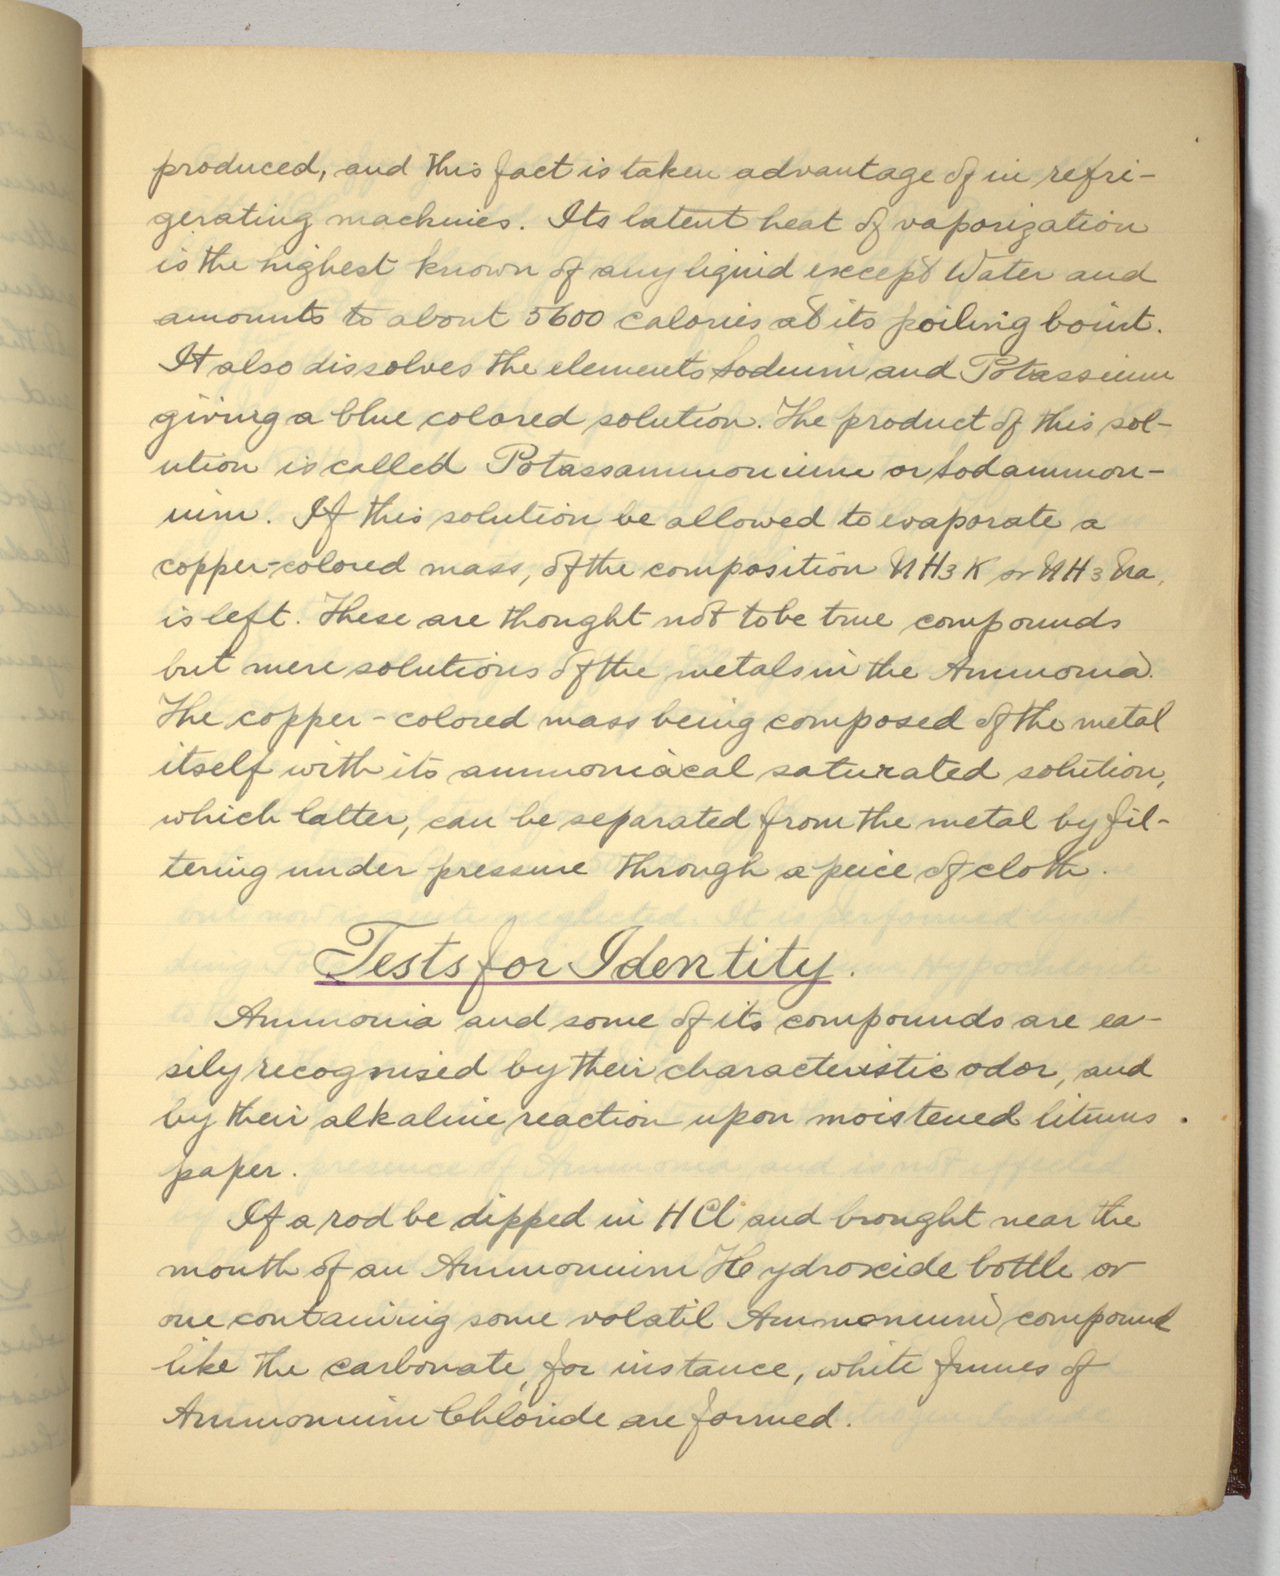 produced, and this fact is taken advantage of in refri-
gerating machines. Its latent heat of vaporization
is the highest known of any liquid except Water and
amounts to about 5600 calories at its poiling boint.
It also dissolves the elements Sodium and Potassium
giving a blue colored solution. The product of this sol-
ution is called Potassammonium or Sodammon-
ium. If this solution be allowed to evaporate a
copper-colored mass, of the composition NH3K or NH3Na,
is left. These are thought not to be true compounds
but mere solutions of the metals in the Ammonia.
The copper-colored mass being composed of the metal
itself with its ammoniacal saturated solution,
which latter, can be separated from the metal by fil-
tering under pressure through a peice of cloth.
Tests for Identity.
Ammonia and some of its compounds are ea-
sily recognised by their characteristic odor, and
by their alkaline reaction upon moistened litmus
paper.
If a rod be dipped in HCl and brought near the
mouth of an Ammonium Hydroxide bottle or
one containing some volatil Ammonium compound
like the carbonate, for instance, white fumes of
Ammonium Chloride are formed.